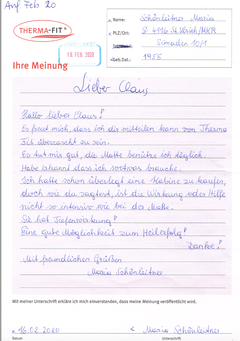 Auf Feb 20
THERMA-FIT®
18. FEB. 2020
Ihre Meinung
Name: Schönleitner Maria
PLZ/Ort: 4916 St. Ulrich/MKR
10/1
Geb.Dat.: 1955
Lieber Claus
Hallo lieber Claus!
Es freut mich, dass ich dir mitteilen kann von Therma
Fit überrascht zu sein.
Es tut mir gut, die Matte benütze ich täglich.
Habe erkannt dass ich sowas brauche.
Ich hatte schon überlegt eine Kabine zu kaufen,
doch wie du sagtest, ist die Wirkung oder Hilfe
nicht so intensiv wie bei der Matte.
Sie hat Tiefenwirkung!
Eine gute Möglichkeit zum Heilerfolg!
Danke!
Mit freundlichen Grüßen
Maria Schönleitner
Mit meiner Unterschrift erkläre ich mich einverstanden, dass meine Meinung veröffentlicht wird.
16.02.2020
Maria Schönleitner
Datum
Unterschrift